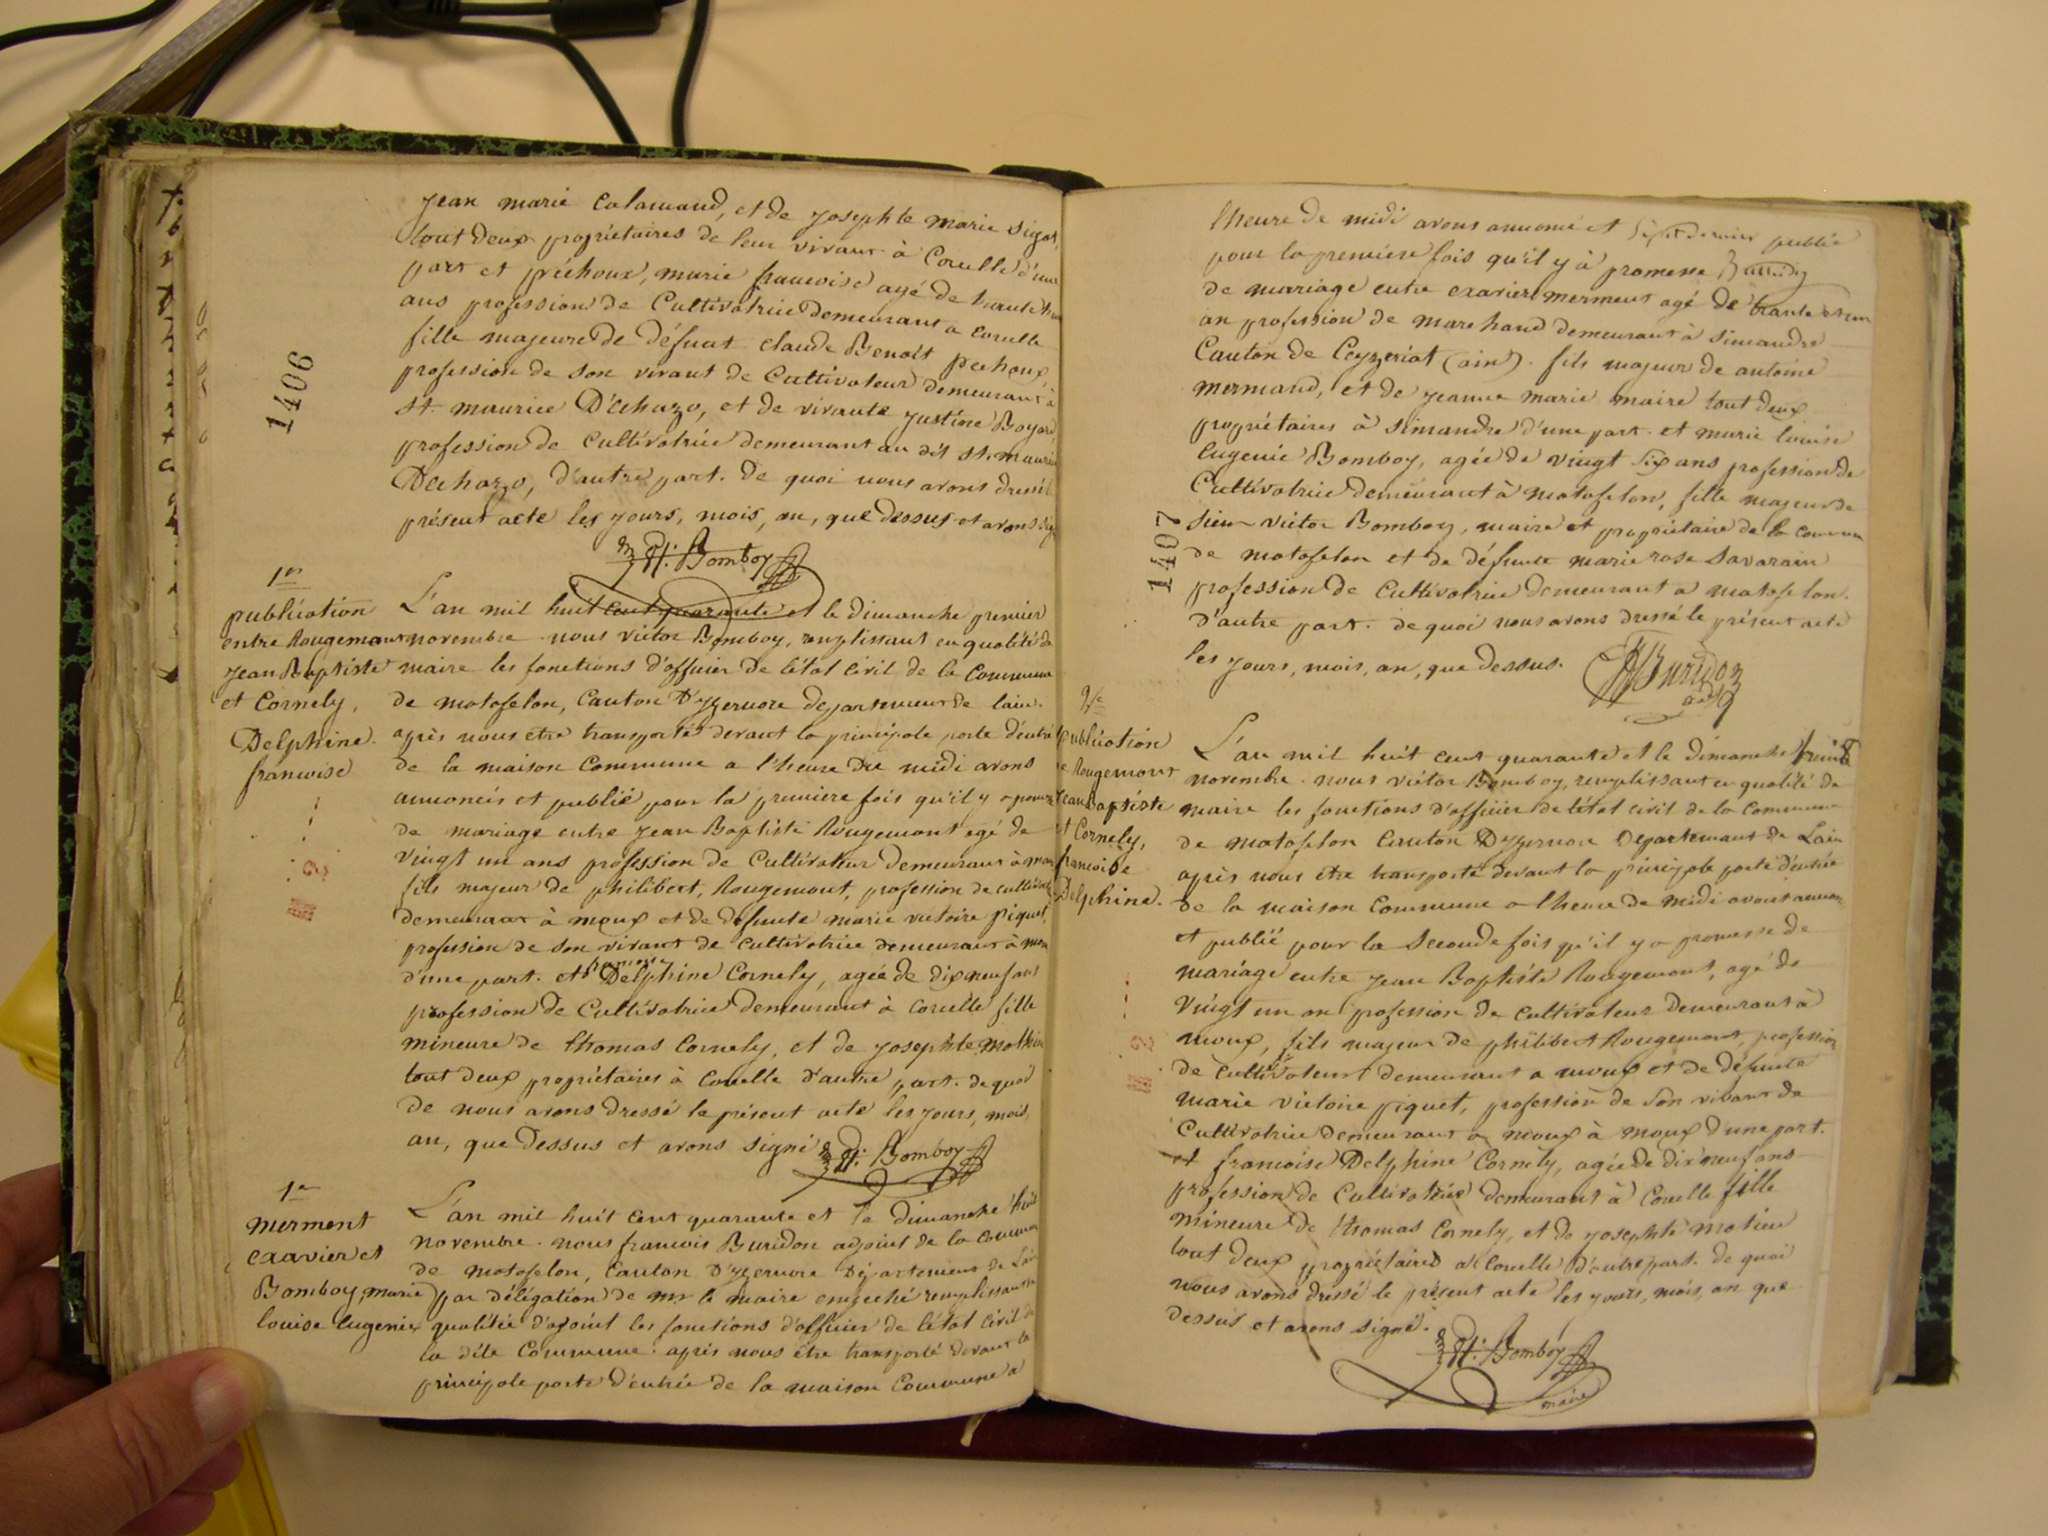 jean marie Calamand, et de josephte marie sigot,
tout deux propriétaires de leur vivant à Corcelle d'une
part et préchoux, marie francoise agé de trante
ans profession de Cultivatrice demeurant a corcelle
fille majeure de défunt claude Benoît pechoux
profession de son vivant de Cultivateur demeurant à
st. maurice D'echazo, et de vivante justine Boyard
profession de Cultivatrice demeurant au dit st. mauric
Dechazo, d'autre part. De quoi nous avons dressé le
présent acte les jours, mois, an, que dessus et avons sig
1406
Vr. Bomboy
1re
publication
entre Rougemont
jean Baptiste
et Cornely,
Delphine.
francoise
L'an mil huit cent quarante et le dimanche premier
novembre. nous victor Bomboy, remplissant en qualité de
maire les fonctions d'officier de l'état civil de la Commune
de matafelon, Canton D'yzernore departement de lain.
après nous être transporté devant la principale porte d'entré
de la maison Commune a l'heure du midi avons
annoncés et publié pour la premiere fois qu'il y a promesse
de mariage entre jean Baptiste Rougemont agé de
vingt un ans profession de Cultivateur demeurant à moux
fils majeur de philibert, Rougemont, profession de cultivate
demeurant à moux et de defunte marie victoire piquet,
profession de son vivant de Cultivatrice demeurant à moux
d'une part. et francoise Delphine Cornely, agée de dix neuf ans
profession de Cultivatrice demeurant à Corcelle fille
mineure de thomas Cornely, et de josephte mathieu
tout deux propriétaires à Corcelle d'autre part. de quoi
de nous avons dressé le présent acte les jours, mois,
an, que dessus et avons signé Vr. Bomboy
1re
merment
exavier et
Bomboy, marie
louise Eugenie
L'an mil huit cent quarante et le dimanche huit
novembre. nous francois Buridon adjoint de la Commune
de matafelon, Canton D'yzernore Département de Lain
par délégation de mr le maire empeché remplissant en
qualitée d'ajoint les fonctions d'officier de l'état civil de
la dite Commune. après nous être transporté devant la
principale porte d'entrée de la maison Commune a
l'heure de midi avons annoncé et publié
pour la première fois qu'il y à promesse
de mariage entre exavier merment agé de trante et un
an profession de marchand demeurant à simandre
Canton de Ceyzeriat (ain). fils majeur de antoine
mermand, et de jeanne marie maire tout deux
propriétaires à simandre d'une part. et marie louise
Eugenie Bomboy, agée de vingt six ans profession de
Cultivatrice demeurant à matafelon, fille majeur de
sieur victor Bomboy, maire et propriétaire de la commune
1407
de matafelon et de défunte marie rose savarain
profession de Cultivatrice demeurant a matafelon.
d'autre part. de quoi nous avons dressé le présent acte
les jours, mois, an, que dessus.
Buridon
adj
2me
publication
e Rougemont
jean Baptiste
et Cornely,
francoise
Delphine.
L'an mil huit cent quarante et le dimanche huit
novembre. nous victor Bomboy, remplissant en qualité de
maire les fonctions d'officier de létat civil de la Commune
de matafelon Canton Dyzernore Departemant de Lain
après nous être transporté devant la principale porte d'entrée
de la maison Commune a lheure de midi avons annon
et publié pour la seconde fois qu'il y a promesse de
mariage entre jean Baptiste Rougemont, agé de
vingt un an profession de cultivateur demeurant à
moux, fils majeur de philibert Rougemont, profession
de cultivateur demeurant a moux et de défunte
marie victoire piquet, profession de son vivant de
Cultivatrice demeurant a moux à moux d'une part.
et francoise Delphine Cornély, agée de dix neuf ans
profession de Cultivatrice demeurant à Corcelle fille
mineure de thomas Cornely, et de josephte matieu
tout deux propriétaires à Corcelle d'autre part. de quoi
nous avons dressé le présent acte les jours, mois, an que
dessus et avons signé.
Vr. Bomboy
maire